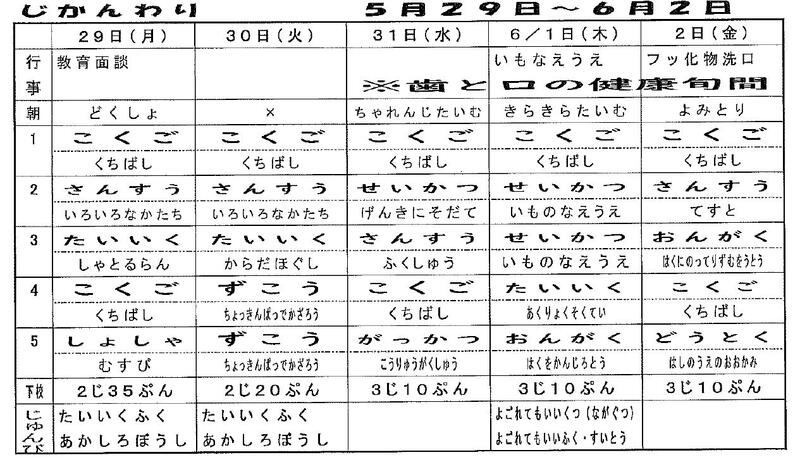 じかんわり　５月２９日～６月２日
２９日（月）　３０日（火）　３１日（水）　６／１日（木）　２日（金）
行事　教育面談　いもなえうえ　フッ化物洗口
※歯と口の健康旬間
朝　どくしょ　×　ちゃれんじたいむ　きらきらたいむ　よみとり
１　こくご　こくご　こくご　こくご　こくご
くちばし　くちばし　くちばし　くちばし　くちばし
２　さんすう　さんすう　せいかつ　せいかつ　さんすう
いろいろなかたち　いろいろなかたち　げんきにそだて　いものなえうえ　てすと
３　たいいく　たいいく　さんすう　せいかつ　おんがく
しゃとるらん　からだほぐし　ふくしゅう　いものなえうえ　はくにのってりずむをうとう
４　こくご　ずこう　こくご　たいいく　こくご
くちばし　ちょっきんぱっでかざろう　くちばし　あくりょくそくてい　くちばし
５　しょしゃ　ずこう　がっかつ　おんがく　どうとく
むすび　ちょっきんぱっでかざろう　こうりゅうがくしゅう　はくをかんじとろう　はしのうえのおおかみ
下校　２じ３５ぷん　２じ２０ぷん　３じ１０ぷん　３じ１０ぷん　３じ１０ぷん
じゅんび　たいいくふく　たいいくふく　よごれてもいいくつ（ながぐつ）
あかしろぼうし　あかしろぼうし　よごれてもいいふく・すいとう